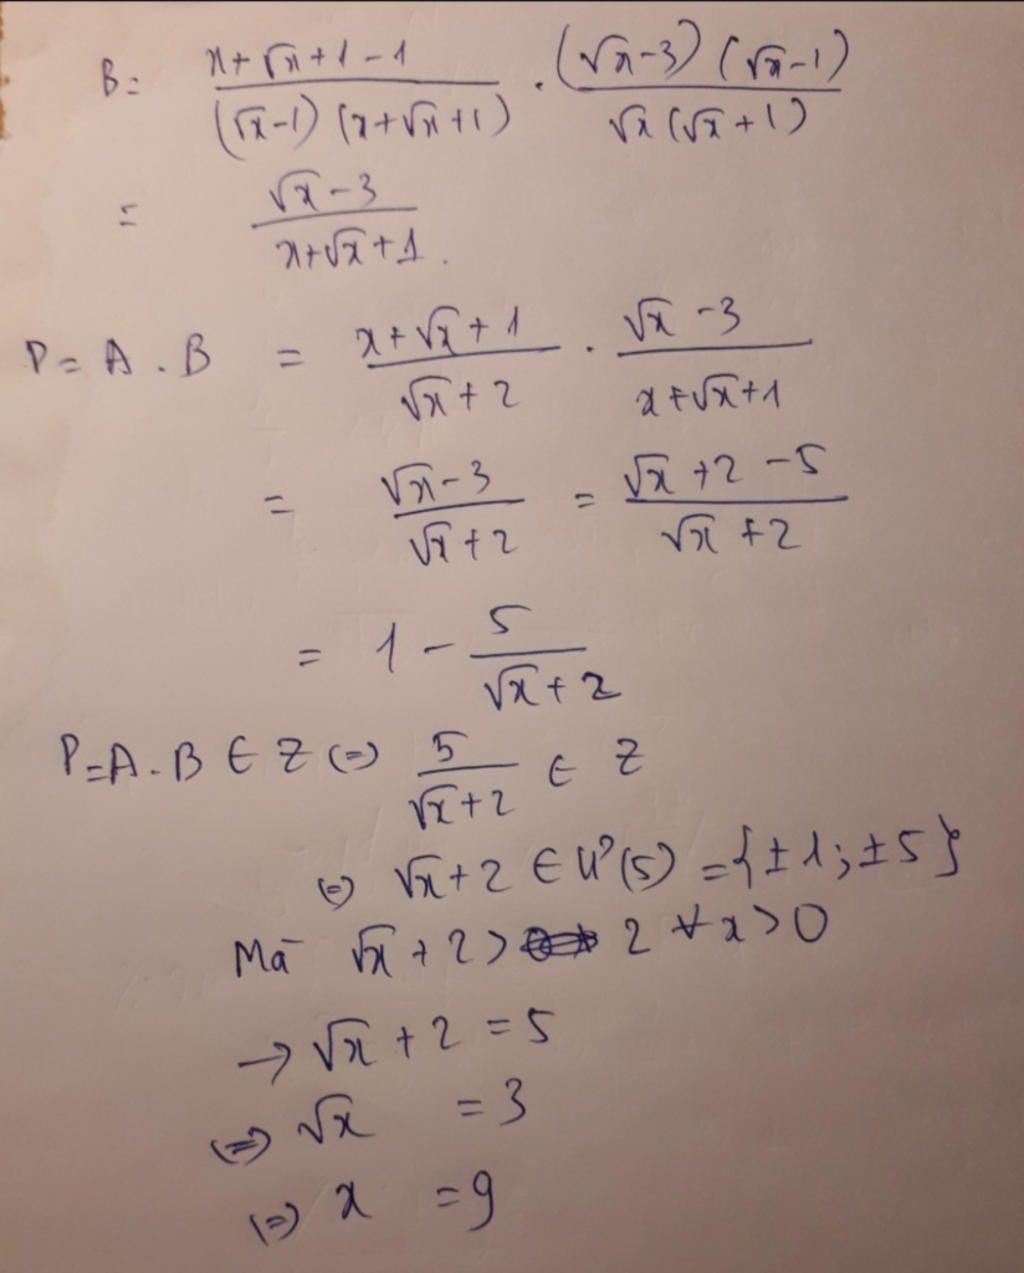 B = \frac{x+\sqrt{x}+1-1}{(\sqrt{x}-1)(x+\sqrt{x}+1)} . \frac{(\sqrt{x}-3)(\sqrt{x}-1)}{\sqrt{x}(\sqrt{x}+1)}
= \frac{\sqrt{x}-3}{x+\sqrt{x}+1}.
P = A . B = \frac{x+\sqrt{x}+1}{\sqrt{x}+2} . \frac{\sqrt{x}-3}{x+\sqrt{x}+1}
= \frac{\sqrt{x}-3}{\sqrt{x}+2} = \frac{\sqrt{x}+2-5}{\sqrt{x}+2}
= 1 - \frac{5}{\sqrt{x}+2}
P=A.B ∈ Z (=) \frac{5}{\sqrt{x}+2} ∈ Z
(=) √x + 2 ∈ Ư(5) = {±1; ±5}
Mà √x + 2 > 2 ∀x > 0
→ √x + 2 = 5
(=) √x = 3
(=) x = 9